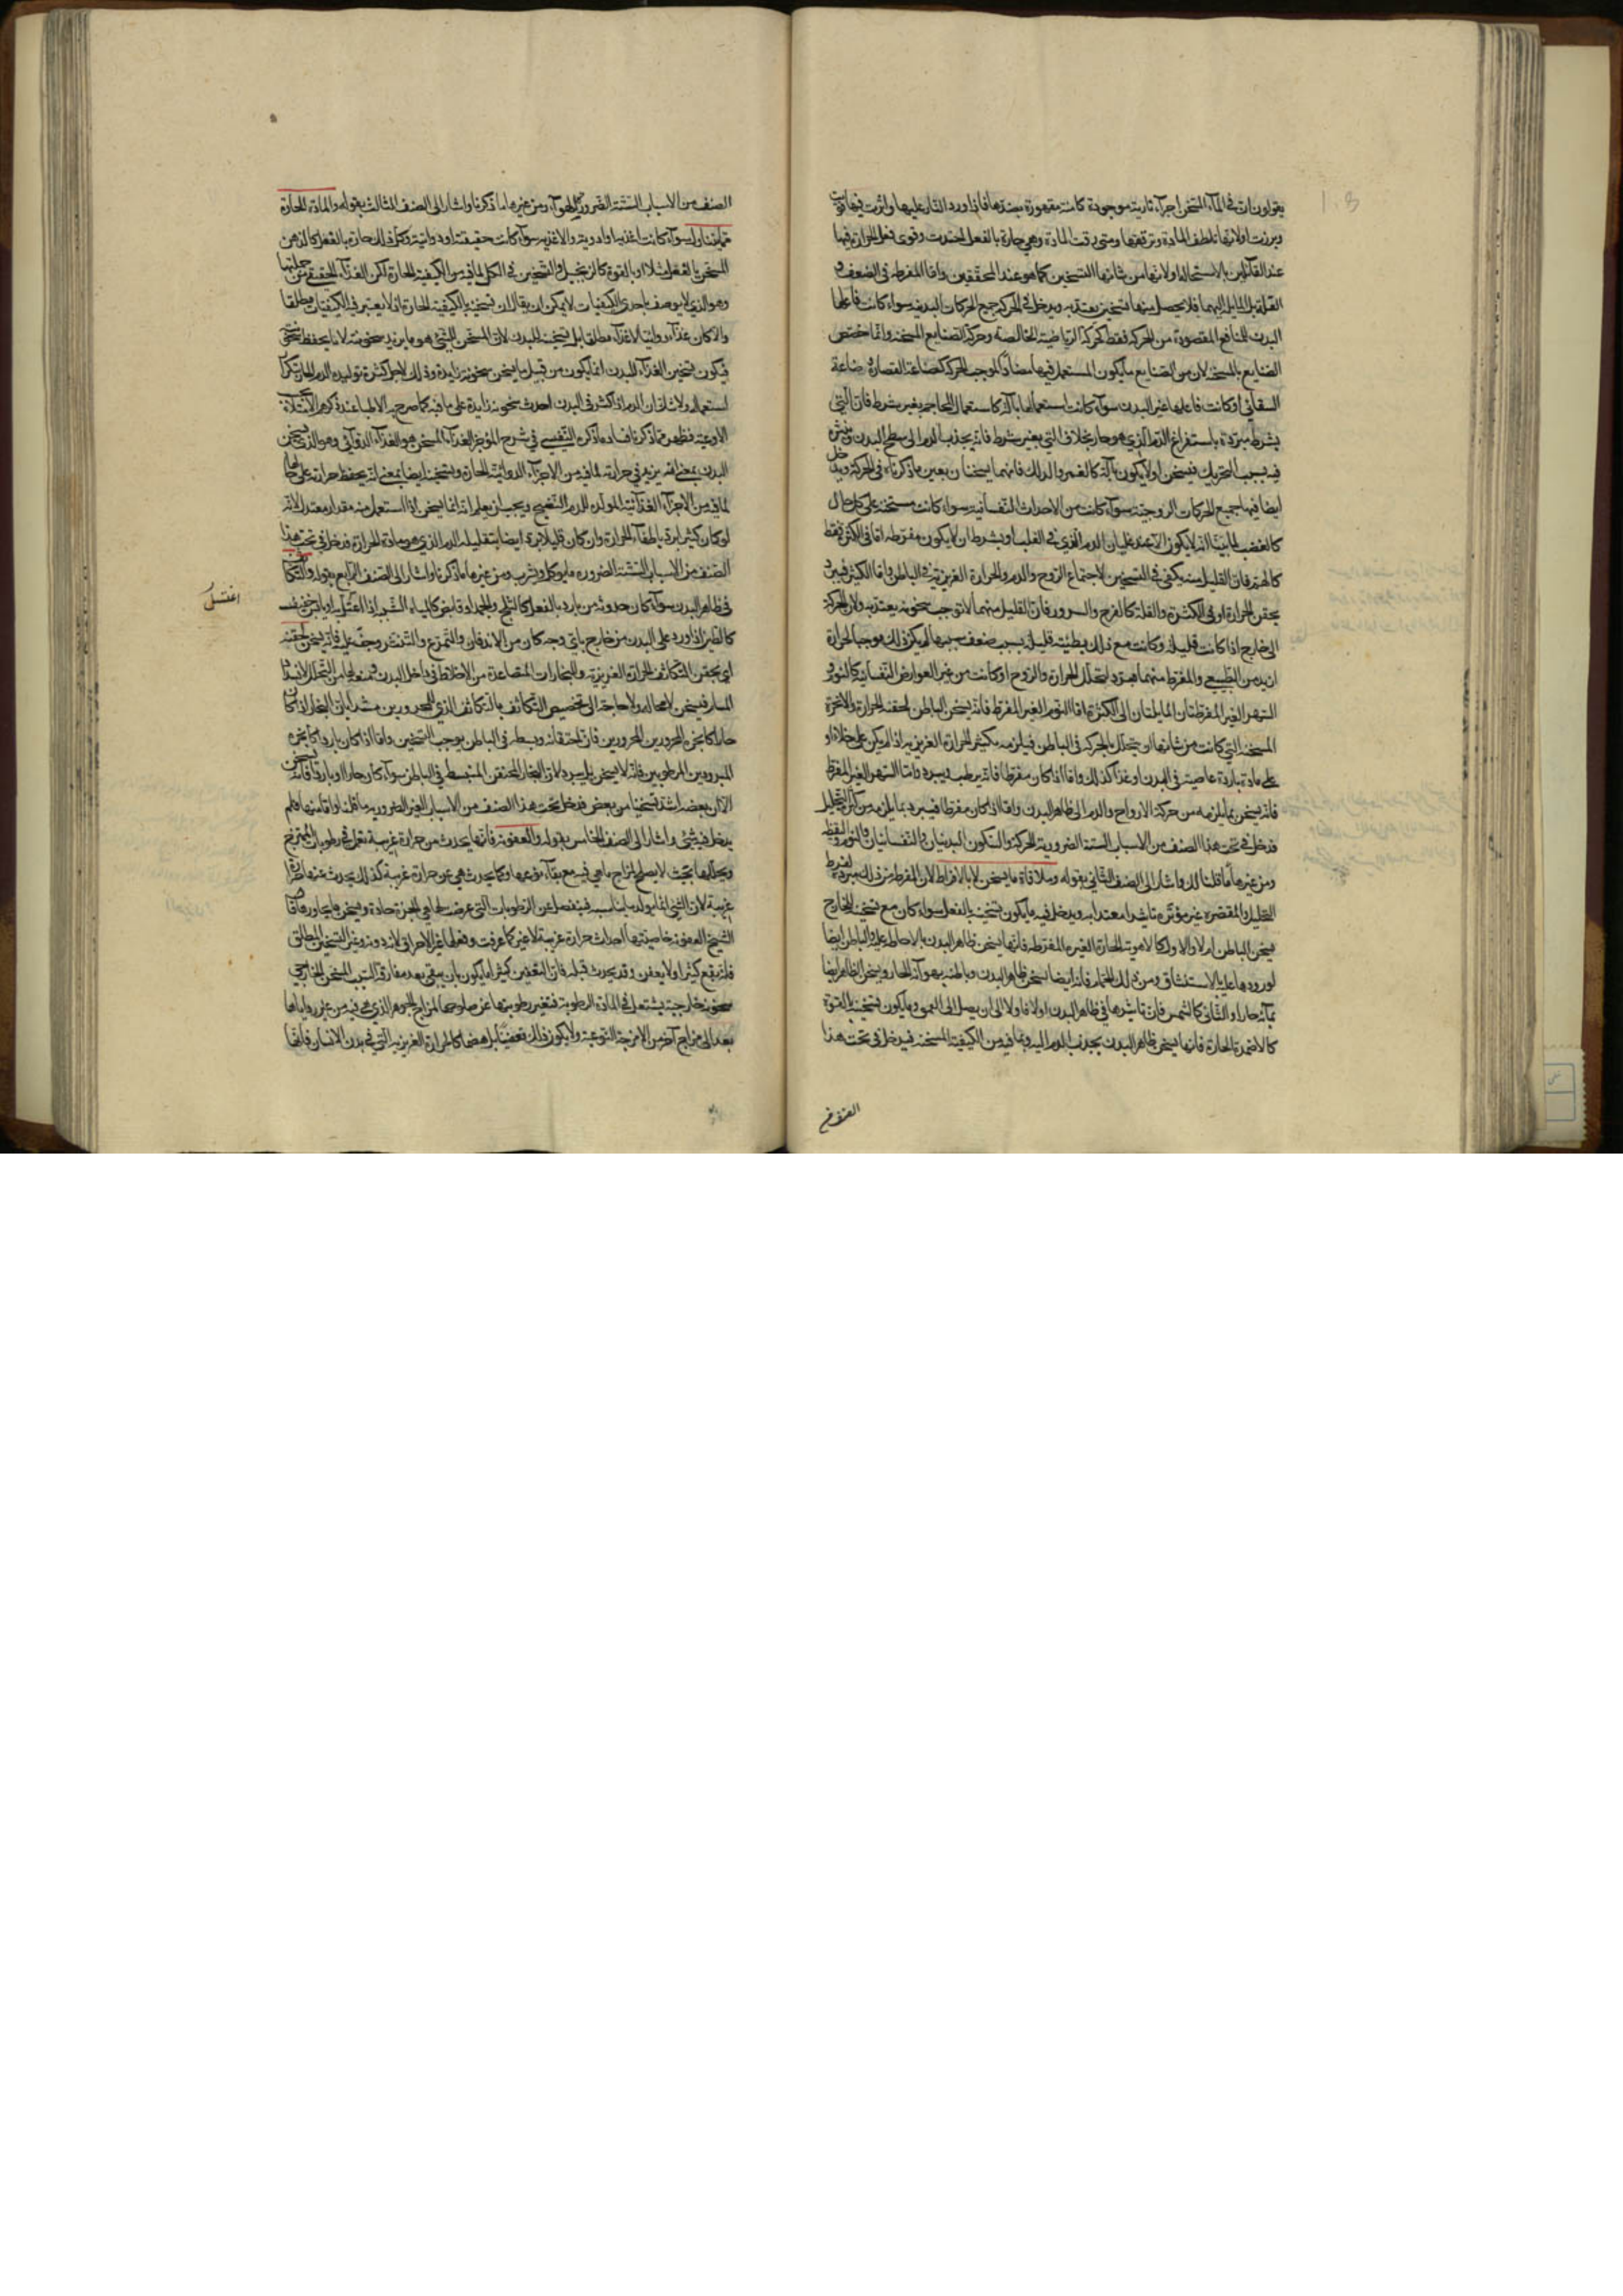 يقولون ان في الماء المسخن اجزاء نارية موجودة كامنة مقهورة ببردها فاذا ورد النار عليها واثرت فيها قويت
وبرزت اولا لانها تلطف المادة وترققها ومتى رقت المادة وهي حارة بالفعل احتدت وقوى فعل الحرارة فيها
عند القائلين بالاستحالة اولا لانها من شانها التسخين كما هو عند المحققين واما المفرطة في الضعف و
القلة المايلة اليهما فلا يحصل منها تسخين يعتد به ويدخل في الحركة جميع الحركات البدنية سواء كانت فاعلها
البدن للمنافع المقصودة من الحركة فقط كحركة الرياضية الخالصة وحركة الصنايع المسخنة وانما خصص
الصنايع بالمسخنة لان من الصنايع ما يكون المستعمل فيها مضادا لموجب الحركة كصناعة القصارة وصناعة
السقائي او كانت فاعلها غير البدن سواء كانت استعمالها بآلة كاستعمال المحاجم بغير شرط فان التي
بشرط مبردة باستفراغ الدم الذي هو حار بخلاف التي بغير شرط فانه يجذب الدم الى سطح البدن وينشره
فيه بسبب التحريك فيسخن او لا يكون بآلة كالغمز والدلك فانهما يسخنان بعين ما ذكرناه في الحركة ويدخل
ايضا فيها جميع الحركات الروحية سواء كانت من الاحداث النفسانية سواء كانت مسخنة على كل حال
كالغضب لما بينا انه لا يكون الا عند غليان الدم الذي في القلب او بشرط ان لا يكون مفرطة اما في الكثرة فقط
كالهم فان القليل منه يكفي في التسخين لاجتماع الروح والدم والحرارة الغريزية في الباطن واما الكثير فيبرد
يحقن الحرارة او في الكثرة والقلة كالفرح والسرور فان القليل منهما لا توجب سخونة يعتد به ولان الحركة
الى خارج اذا كانت قليلة وكانت مع ذلك بطيئة قليلة بسبب ضعف سببها لم يكن ذلك موجبا لحرارة
ازيد من الطبيعي والمفرط منهما مبرد لتحلل الحرارة والروح او كانت من غير العوارض النفسانية كالنوم و
السهر الغير المفرطتان المايلتان الى الكثرة اما النوم الغير المفرط فانه يسخن الباطن لحقنه الحرارة والابخرة
المسخنة التي كانت من شانها ان يتحلل بالحركة في الباطن فيلزمه تكثير الحرارة الغريزية اذا لم يكن على خلاء او
على مادة باردة عاصية في البدن او غذا كذلك واما اذا كان مفرطا فانه يرطب ويبرد واما السهر الغير المفرط
فانه يسخن بما يلزمه من حركة الارواح والدم الى ظاهر البدن واما اذا كان مفرطا فيبرد بما يلزمه من كثرة التحليل
فدخل في تحت هذا الصنف من الاسباب الستة الضرورية الحركة والسكون البدنيان والنفسانيان والنوم واليقظة
ومن غيرها ما قلنا لك واشار الى الصنف الثاني بقوله وملاقاة ما يسخن لا بالافراط لان المفرط من ذلك مبرد لفرط
التحليل والمقصره غير مؤثرة تاثيرا معتدا به ويدخل فيه ما يكون تسخينه بالفعل سواء كان مع تسخينه الخارج
يسخن الباطن ام لا والاول كالاهوية الحارة الغير المفرطة فانها يسخن ظاهر البدن بالاحاطة عليه والباطن ايضا
لورودها عليه بالاستنشاق ومن ذلك الحمام فانه ايضا يسخن ظاهر البدن وباطنه بهوائه الحار ويسخن الظاهر ايضا
بمائه حارا والثاني كالشمس فان تاثيرها في ظاهر البدن اولا فاولا الى ان يصل الى العمق وما يكون تسخينه بالقوة
كالاضمدة الحارة فانها يسخن ظاهر البدن بجذب الدم اليه وبما فيه من الكيفية المسخنة فيدخل في تحت هذا
الصنف
الصنف من الاسباب الستة الضرورية الهواء ومن غيرها ما ذكرنا واشار الى الصنف الثالث بقوله والمادة الحارة
مما يتناول سواء كانت اغذية او ادوية والاغذية سواء كانت حقيقة او دوائية وكل ذلك حارة بالفعل كالدهن
المسخن بالفعل مثلا او بالقوة كالزنجبيل والتسخين في الكل لما فيه من الكيفية الحارة لكن الغذاء الحقيقي من جملتها
وهو الذي لا يوصف باحدى الكيفيات لا يمكن ان يقال ان تسخينه بالكيفية الحارة اذ لا يعتبر فيه الكيفيات مطلقا
والا كان غذاء دوائيا لا غذاء مطلقا بل تسخينه للبدن لان المسخن للشيء هو ما يزيد سخونته لا ما يحفظ سخونته
فيكون تسخين الغذاء للبدن انما يكون من قبيل ما يسخن سخونة زايدة وذلك لاجل كثرة توليده الدم الحار بكثرة
استعماله ولا شك ان الدم اذا كثر في البدن احدث سخونة زايدة على ما فيه كما صرح به الاطباء عند ذكرهم الامتلاء
الاوعية فظهر مما ذكرنا فساد ما ذكره النفيسي في شرح الموجز الغذاء المسخن هو الغذاء الدوائي وهو الذي يسخن
البدن بمعنى انه يزيد في حرارته لما فيه من الاجزاء الدوائية الحارة ويسخنه ايضا بمعنى انه يحفظ حرارته على حالها
لما فيه من الاجزاء الغذائية المولدة للدم الصحيح ويجب ان يعلم انه انما يسخن اذا استعمل منه مقدار معتدل لانه
لو كان كثيرا برد باطفاء الحرارة وان كان قليلا برد ايضا بتقليله الدم الذي هو مادة الحرارة فدخل في تحت هذا
الصنف من الاسباب الستة الضرورية ما يؤكل ويشرب ومن غيرها ما ذكرنا واشار الى الصنف الرابع بقوله والتكاثف
في ظاهر البدن سواء كان حدوثه من بارد بالفعل كالثلج والجمد او قابض كالمياه الشبية اذا اغتسل بها او يابس خفيف
اغتسل
كالطين اذا ورد على البدن من خارج باي وجه كان من الاندفان والتمرغ والتنثر وجف عليه فانه يسخن لحقنه
اي يحقن التكاثف الحرارة الغريزية والبخارات المتصاعدة من الاخلاط في داخل البدن ومنعها من التحلل لانسداد
المسام فيسخن لا محالة ولا حاجة الى تخصيص التكاثف بالتكاثف الذي للمحرورين مستدلا بان البخار اذا كان
حارا كابخرة المحرورين فان احتقانه وبسطه في الباطن يوجب التسخين واما اذا كان باردا كابخرة
المبرودين المرطوبين فانه لا يسخن بل يبرد لان البخار المحتقن المنبسط في الباطن سواء كان حارا او باردا فانه يسخن
الا ان بعضه اشد تسخينا من بعض فدخل تحت هذا الصنف من الاسباب الغير الضرورية ما قلنا واما منها فلم
يدخل فيه شيء واشار الى الصنف الخامس بقوله والعفونة فانها يحدث من حرارة غريبة تعمل في رطوبات الممتزج
ويحللها بحيث لا يصلح لمزاج ما هي فيه مع بقاء نوعها وكما يحدث هي عن حرارة غريبة كذلك يحدث عنها حرارة
غريبة لان الشيء انما يولد ما يناسبه فينفصل عن الرطوبات التي عرضت لها هي ابخرة حادة ويسخن ما يجاورها قال
الشيخ العفونة خاصيتها احداث حرارة غريبة لا غير كما عرفت وفعلها غير الاحراق لانه دونه وغير التسخين المطلق
فانه يقع كثيرا ولا يعفن وقد يحدث قبله فان التعفين كثيرا ما يكون بان يبقى بعد مفارقة السبب المسخن الخارجي
سخونة خارجية يشتعل في المادة الرطوبة فتغير رطوبتها عن صلوحها لمزاج الجوهر الذي هي فيه من غير رد اياها
بعد الى مزاج آخر من الامزجة النوعية ولا يكون ذلك تعفينا بل هضما كالحرارة الغريزية التي في بدن الانسان فانها